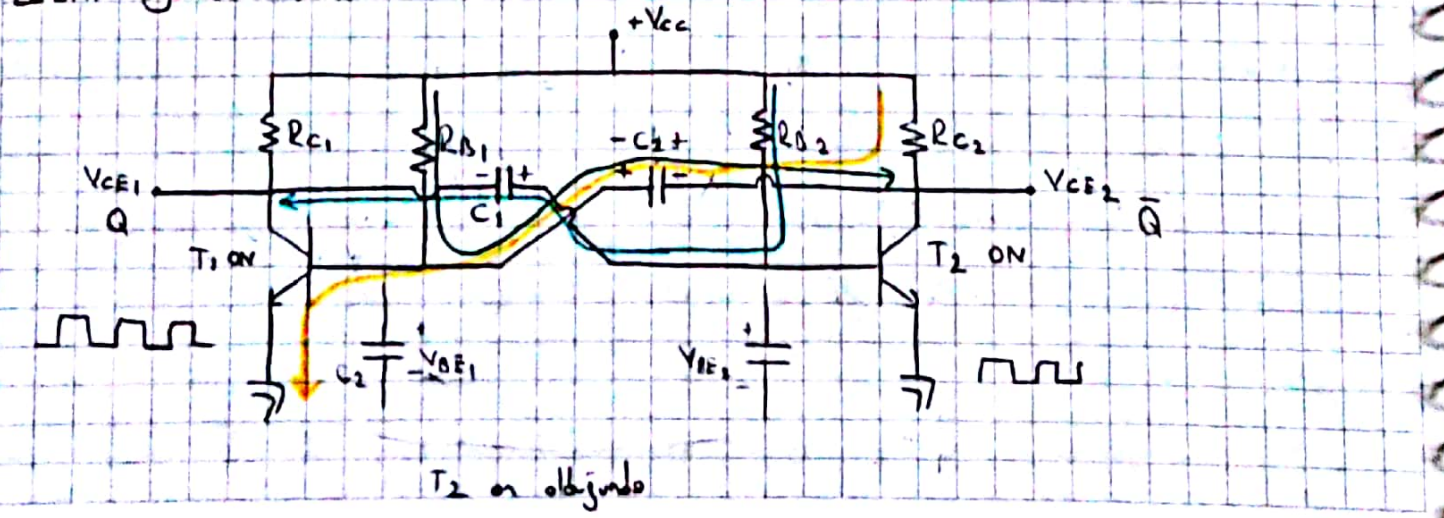 +Vcc
RC1
RB1
-C2+
RB2
RC2
VCE1
- +
+ -
VCE2
Q
C1
Q̄
T1 ON
T2 ON
+
+
C2
-VBE1
VBE2
-
T2 on olduğunda